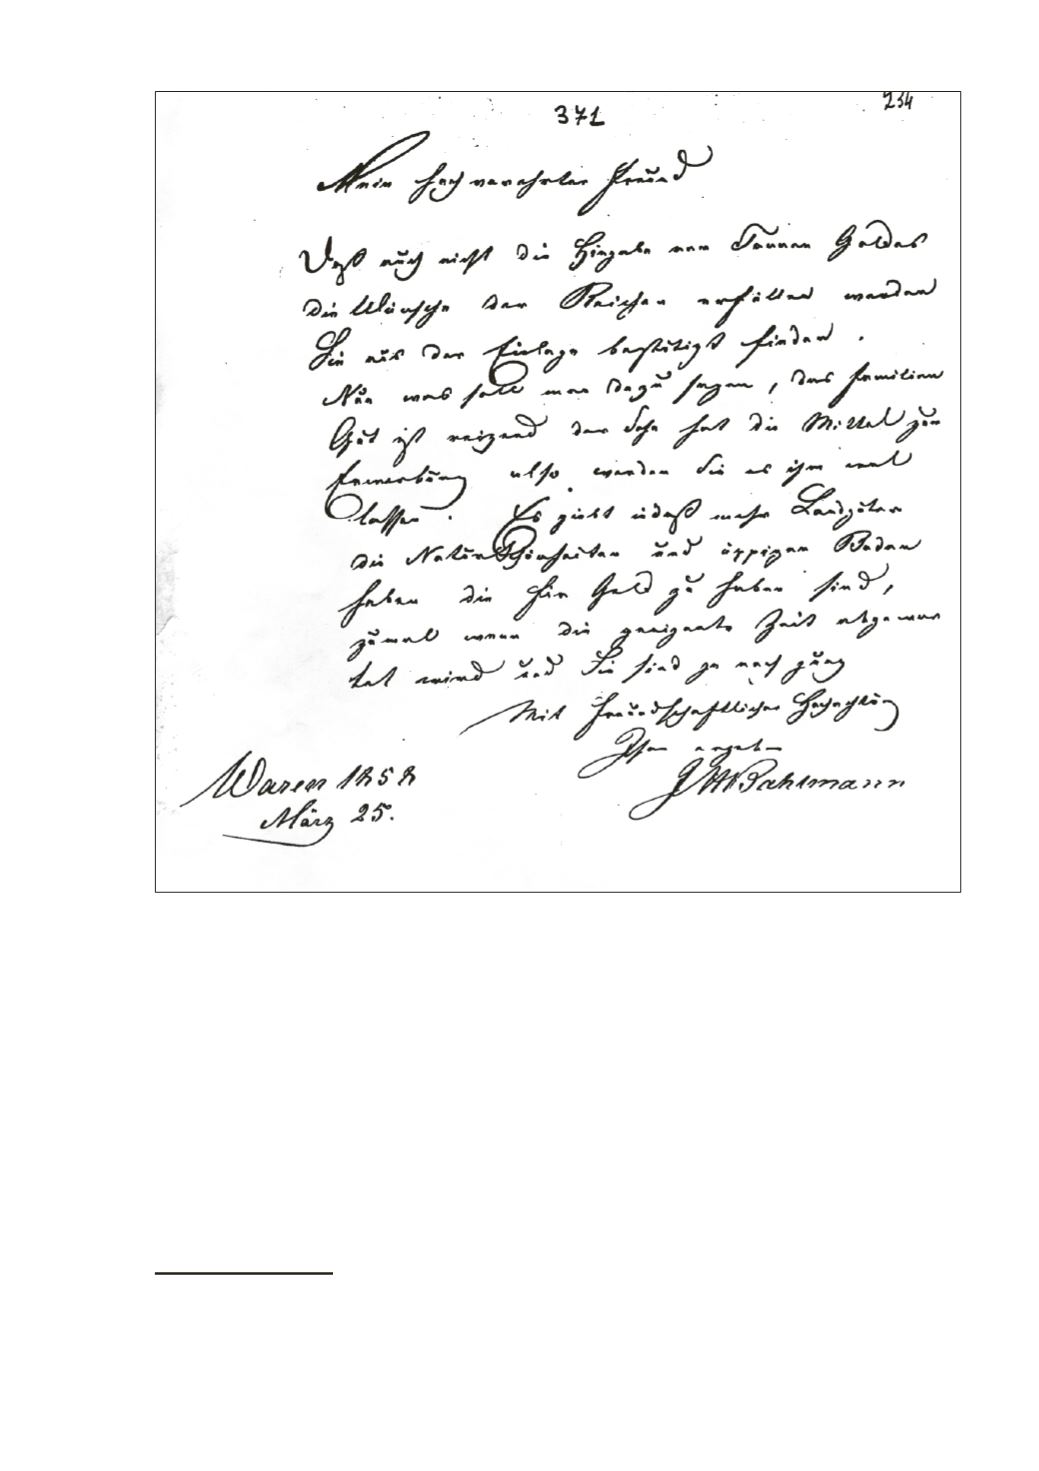 371
234
Mein hochverehrter Freund
Daß auch nicht die Hingabe von Tonnen Goldes
die Wünsche der Reichen erfüllen werden
Sie aus der Einlage bestätigt finden.
Nun was soll man dazu sagen, das Familien
Gut ist reizend der Sohn hat die Mittel zur
Erwerbung also werden Sie es ihm wol
lassen. Es giebt indeß mehr Landgüter
die Naturschönheiten und üppigen Boden
haben die für Geld zu haben sind,
zumal wenn die geeignete Zeit abgewar
tet wird und Sie sind ja noch jung
Mit freundschaftlicher Hochachtung
Ihr ergeb
Pahlmann
Waren 1858
März 25.